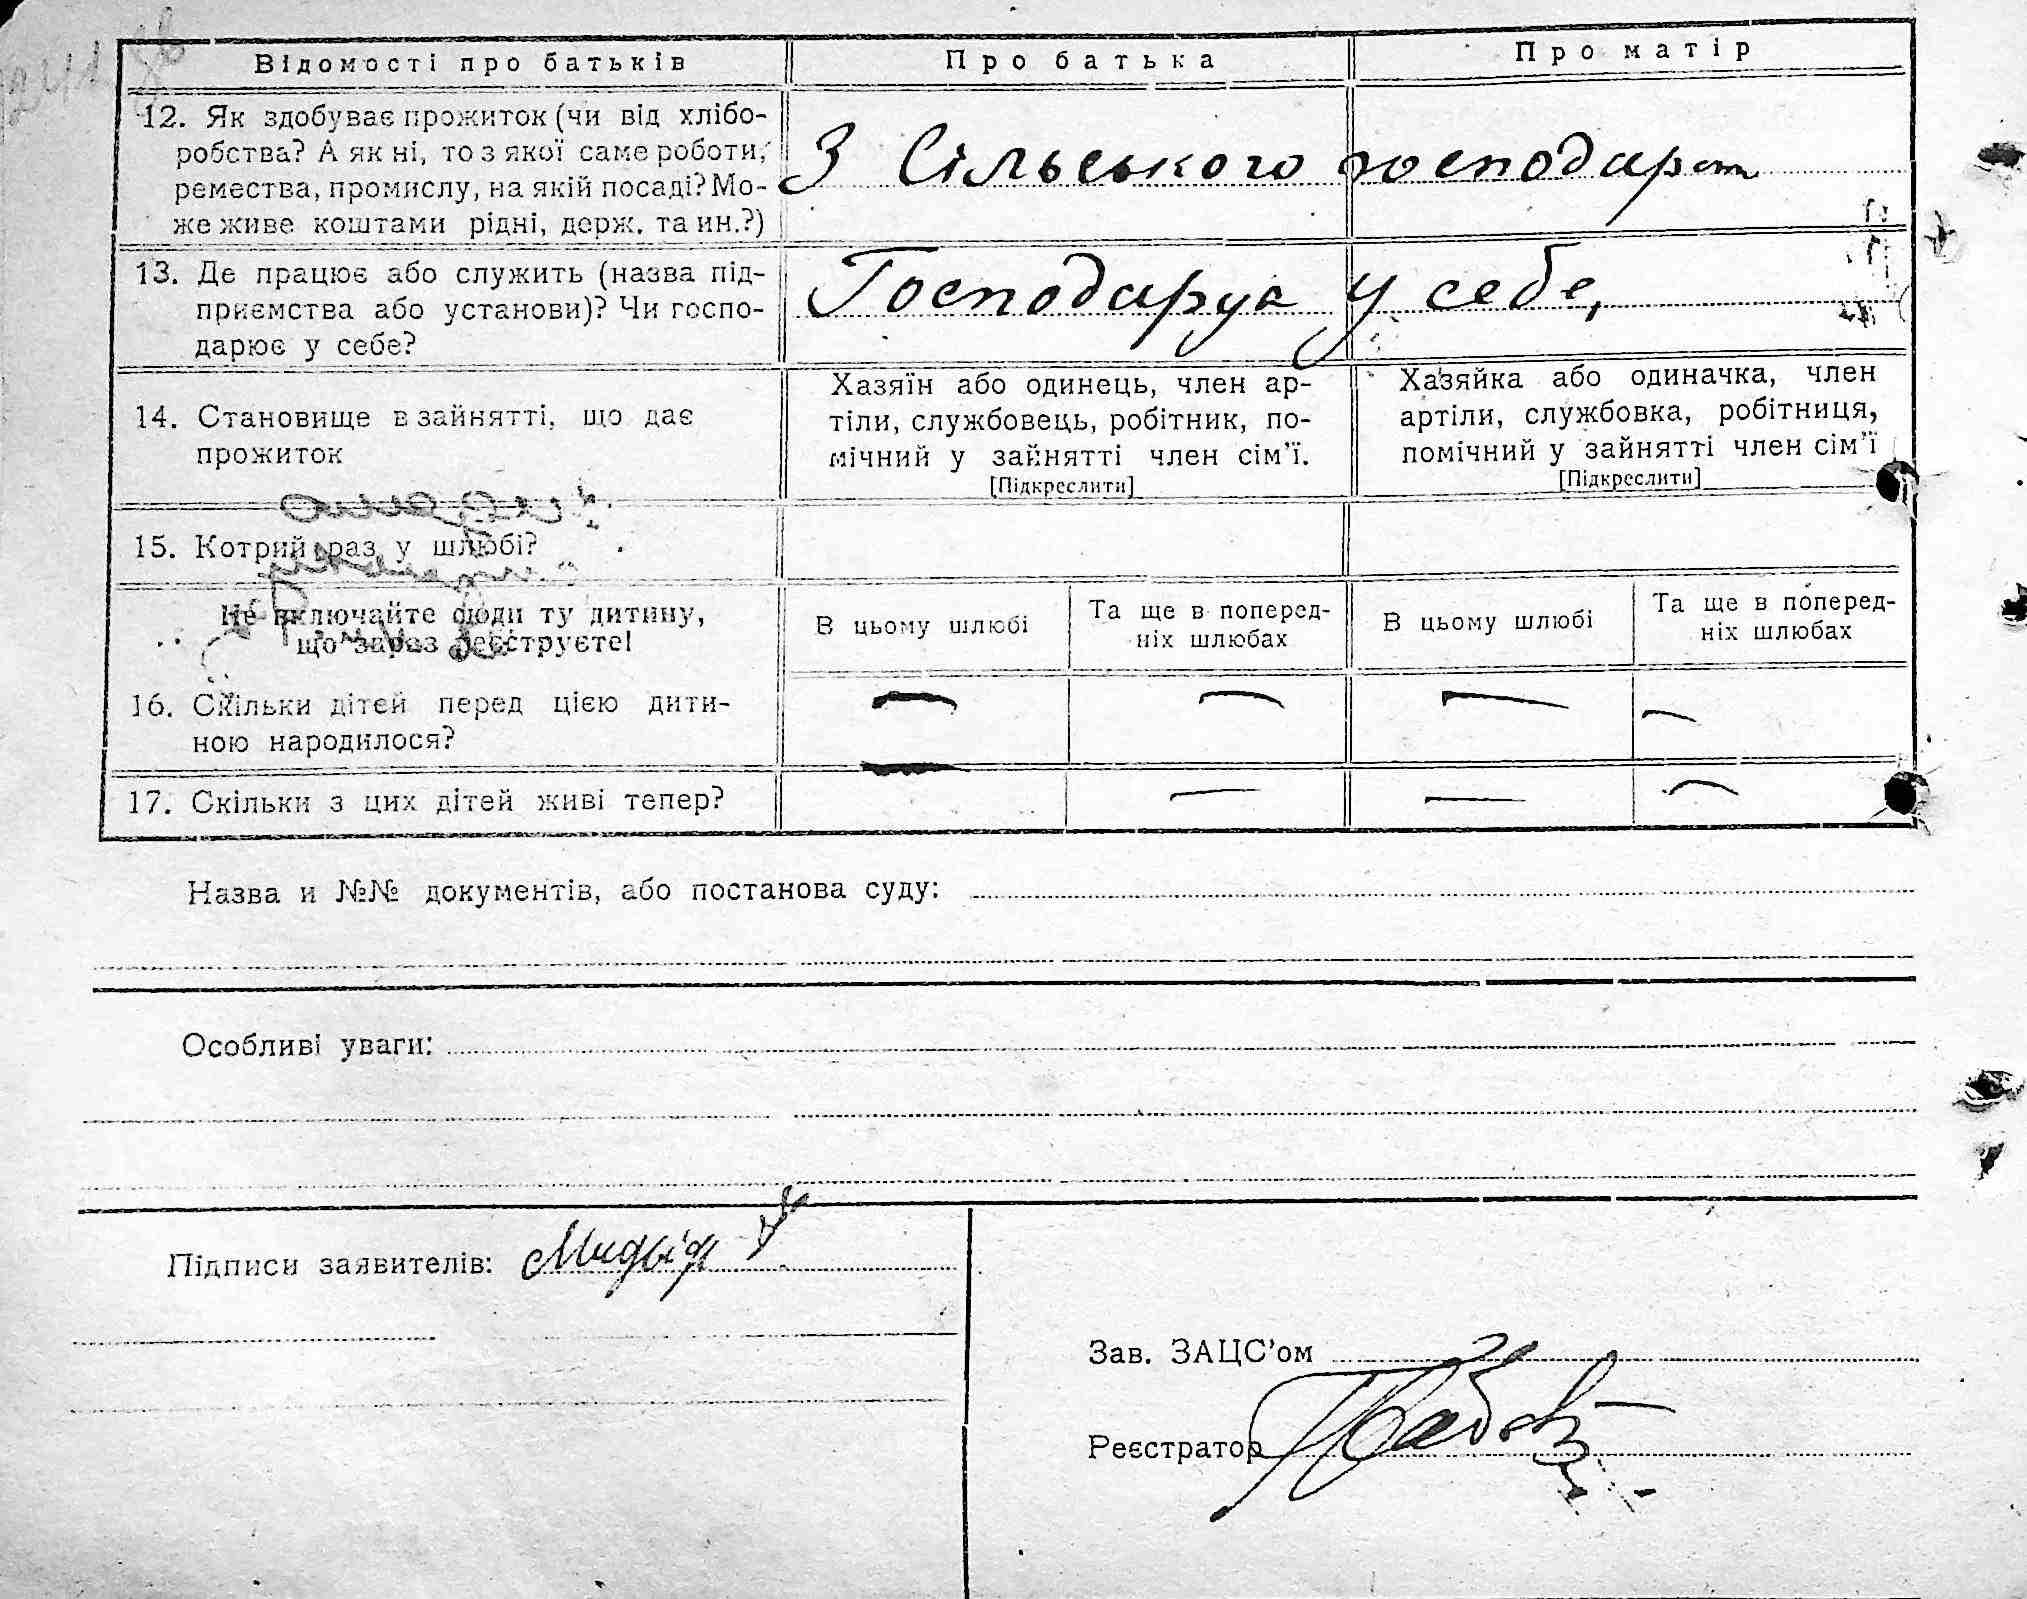 Відомості про батьків
Про батька
Про матір
12. Як здобуває прожиток (чи від хлібо-
робства? А як ні, то з якої саме роботи,
ремества, промислу, на якій посаді? Мо-
же живе коштами рідні, держ. та ин.?)
З Сільського господарст
13. Де працює або служить (назва під-
приємства або установи)? Чи госпо-
дарює у себе?
Господарує у себе,
14. Становище в зайнятті, що дає
прожиток
Хазяїн або одинець, член ар-
тіли, службовець, робітник, по-
мічний у зайнятті член сім’ї.
[Підкреслити]
Хазяйка або одиначка, член
артіли, службовка, робітниця,
помічний у зайнятті член сім’ї
[Підкреслити]
15. Котрий раз у шлюбі?
Не включайте сюди ту дитину,
що зараз реєструєте!
В цьому шлюбі
Та ще в поперед-
ніх шлюбах
В цьому шлюбі
Та ще в поперед-
ніх шлюбах
16. Скільки дітей перед цією дити-
ною народилося?
— — — —
17. Скільки з цих дітей живі тепер?
— — — —
Назва и №№ документів, або постанова суду:
Особливі уваги:
Підписи заявителів:
Зав. ЗАЦС’ом
Реєстратор